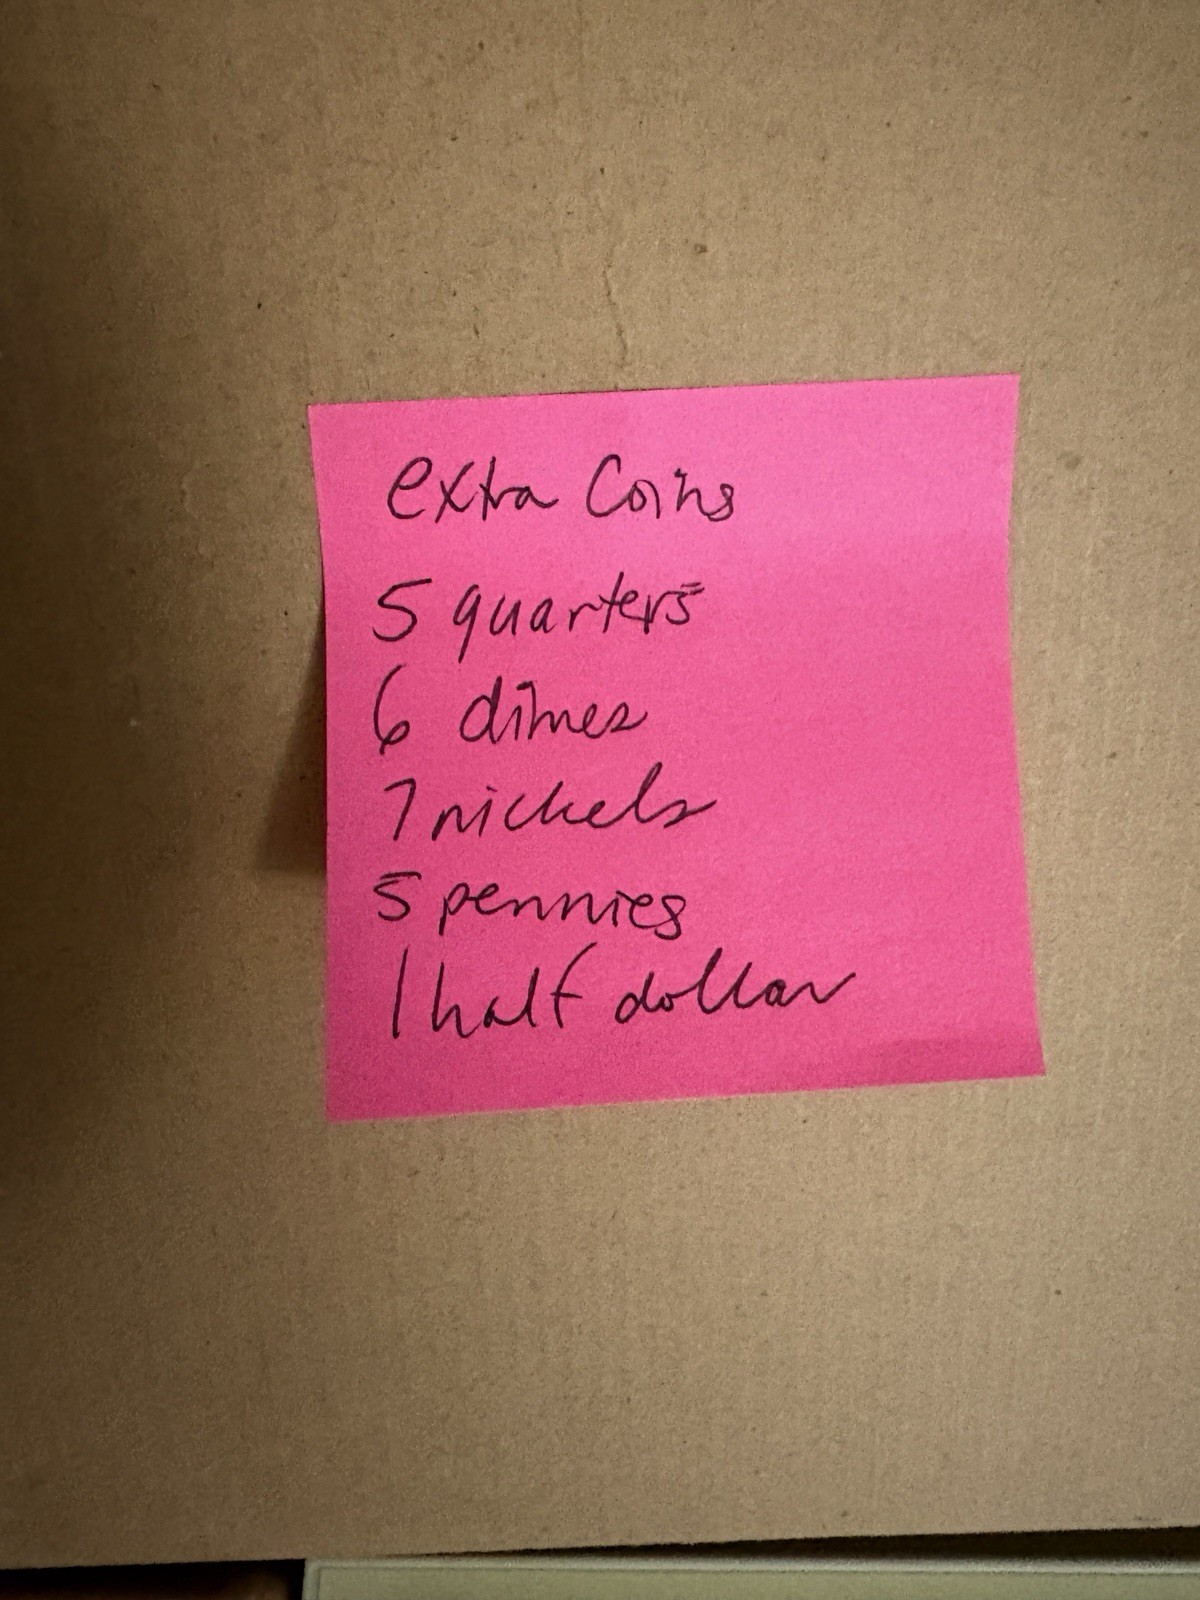 extra Coins
5 quarters
6 dimes
7 nickels
5 pennies
1 half dollar